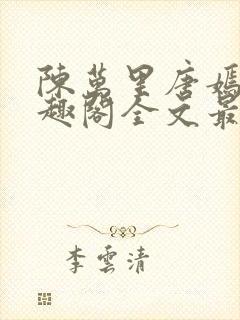 陳萬里唐嫣
趣閣全文最
李雲清